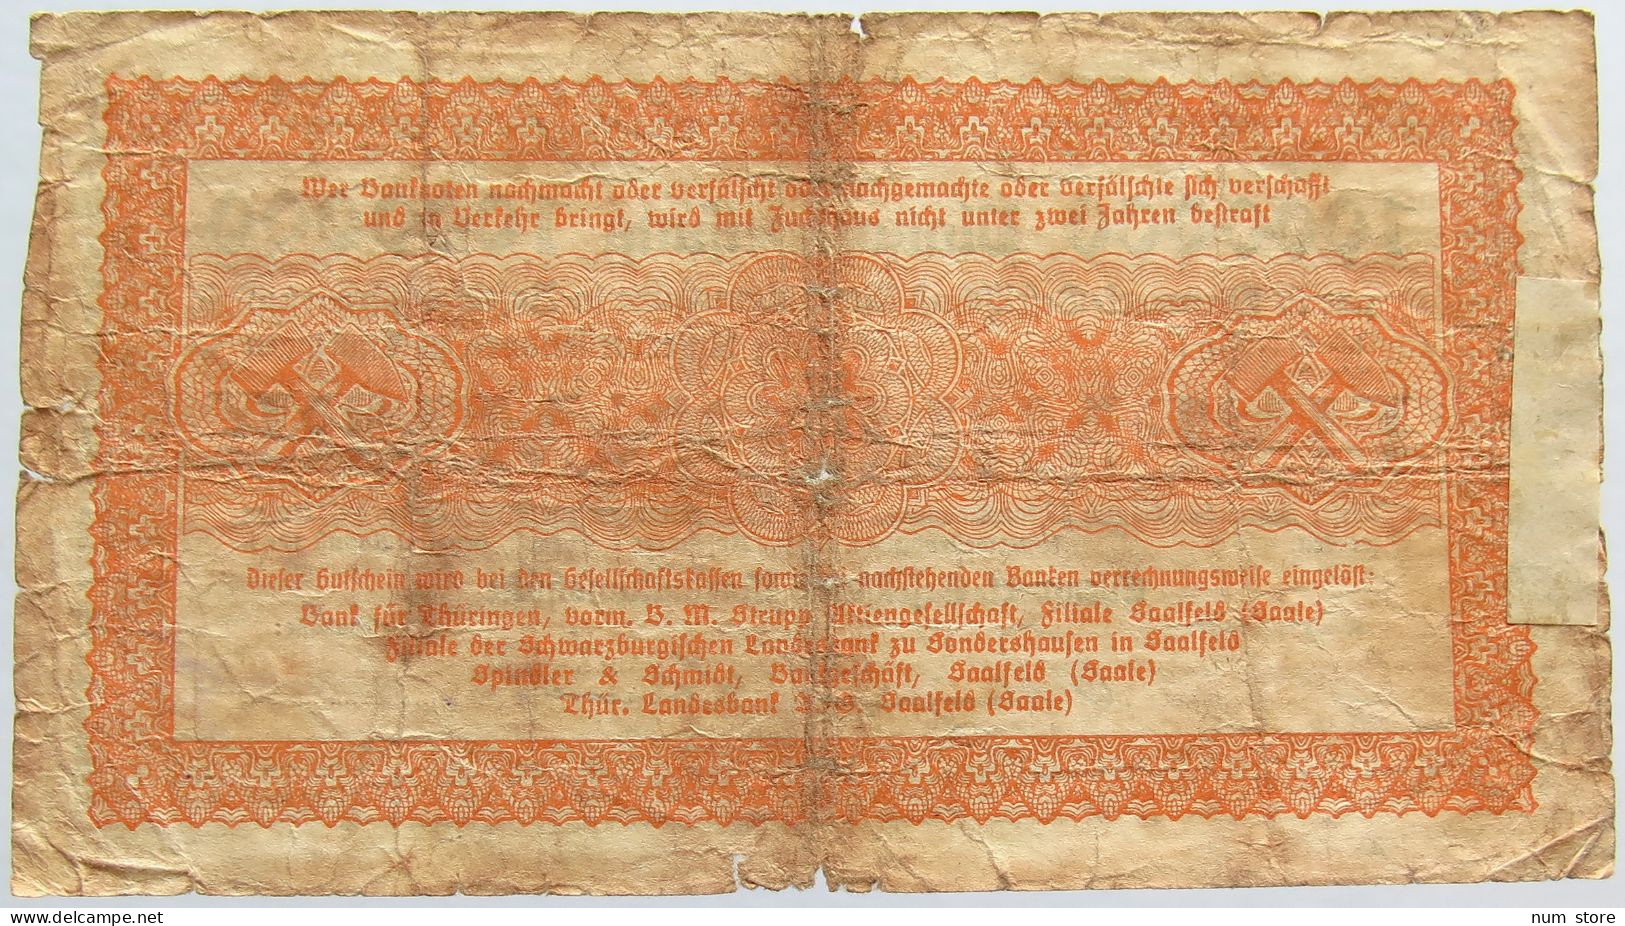 Wer Banknoten nachmacht oder verfälscht oder nachgemachte oder verfälschte sich verschafft
und in Verkehr bringt, wird mit Zuchthaus nicht unter zwei Jahren bestraft
Dieser Gutschein wird bei den Gesellschaftskassen sowie bei nachstehenden Banken verrechnungsweise eingelöst:
Bank für Thüringen, vorm. B. M. Strupp Aktiengesellschaft, Filiale Saalfeld (Saale)
Filiale der Schwarzburgischen Landesbank zu Sondershausen in Saalfeld
Spindler & Schmidt, Bankgeschäft, Saalfeld (Saale)
Thür. Landesbank A. G. Saalfeld (Saale)
www.delcampe.net
num store